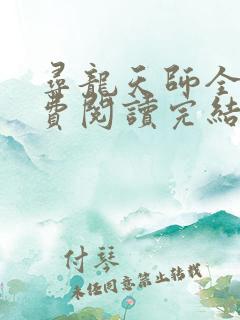 尋龍天師全
費閱讀完結
付琴
未经同意禁止转载